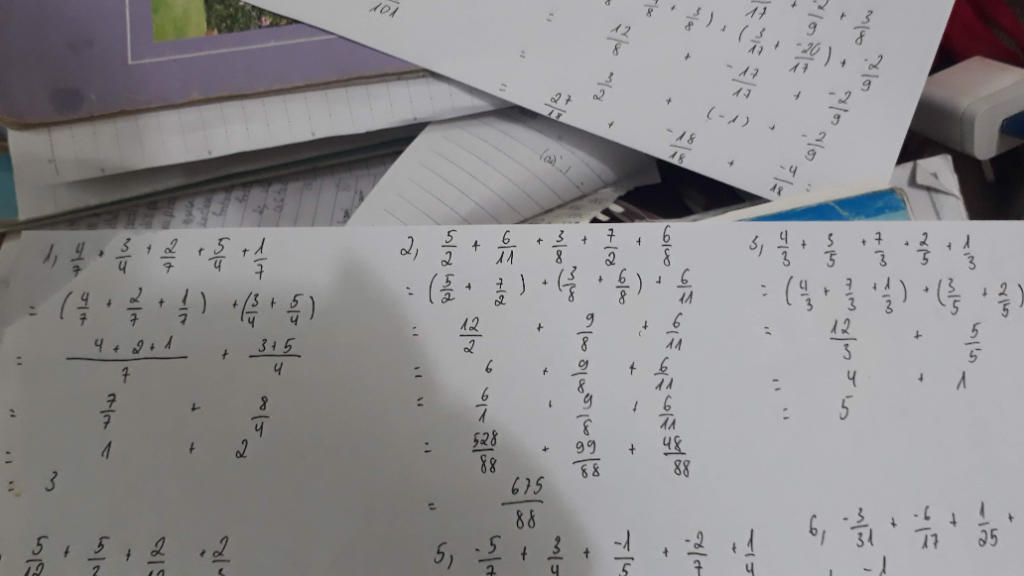 101
= 8/8 + 3/8) + (3/17 + -20/17) + -2/9
= 12/8 + -17/17 + -2/9
= 3/2 + (-1) + -2/9
27/18 + -18/18 + -4/18 =
1, 4/7 + 3/4 + 2/7 + 5/4 + 1/7
= (4/7 + 2/7 + 1/7) + (3/4 + 5/4)
= 4+2+1/7 + 3+5/4
= 7/7 + 8/4
= 1 + 2
= 3
2, 5/2 + 6/11 + 3/8 + 7/2 + 6/8
= (5/2 + 7/2) + (3/8 + 6/8) + 6/11
= 12/2 + 9/8 + 6/11
= 6 + 9/8 + 6/11
= 6/1 + 9/8 + 6/11
= 528/88 + 99/88 + 48/88
= 675/88
3, 4/3 + 3/5 + 7/3 + 2/5 + 1/3
= (4/3 + 7/3 + 1/3) + (3/5 + 2/5)
= 12/3 + 5/5
= 4 + 1
= 5
5/12 + 5/3 + 2/12 + 2/3
5, -5/7 + 3/4 + -1/5 + -2/7 + 1/4
6, -3/31 + -6/17 + 1/25 +
-1